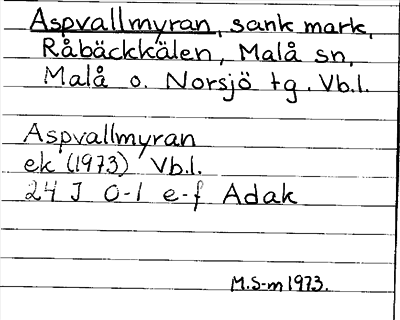 Aspvallmyran, sank mark,
Råbäckkälen, Malå sn,
Malå o. Norsjö tg. Vb.l.
Aspvallmyran
ek (1973) Vb.l.
24 J 0-1 e-f Adak
M.S-m 1973.